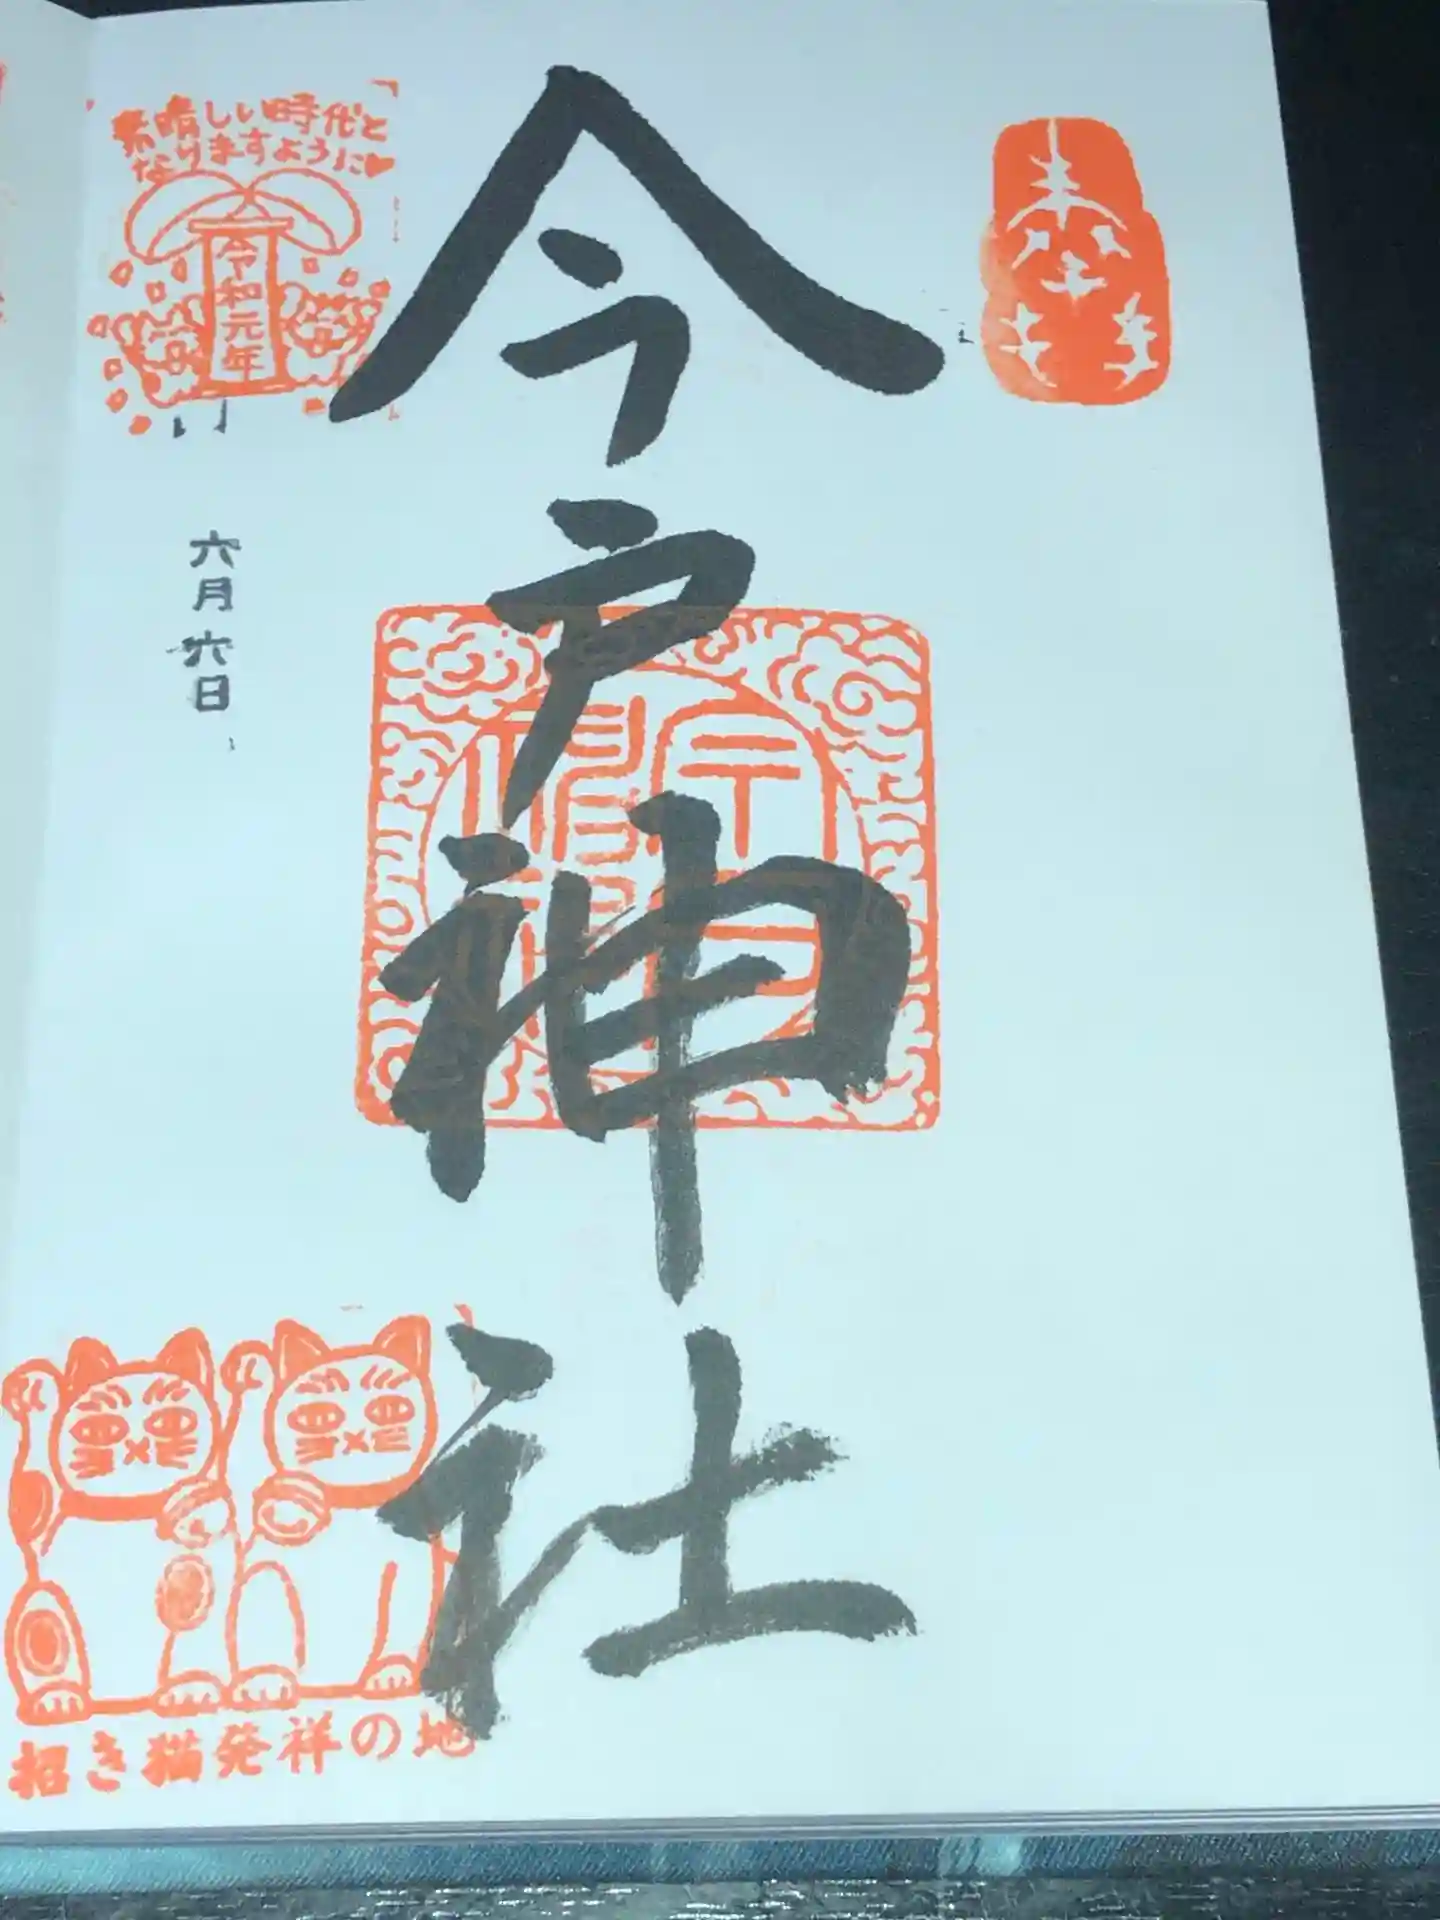 奉拝
今戸神社
素晴しい時代と
なりますように♥
令和元年
六月六日
招き猫発祥の地